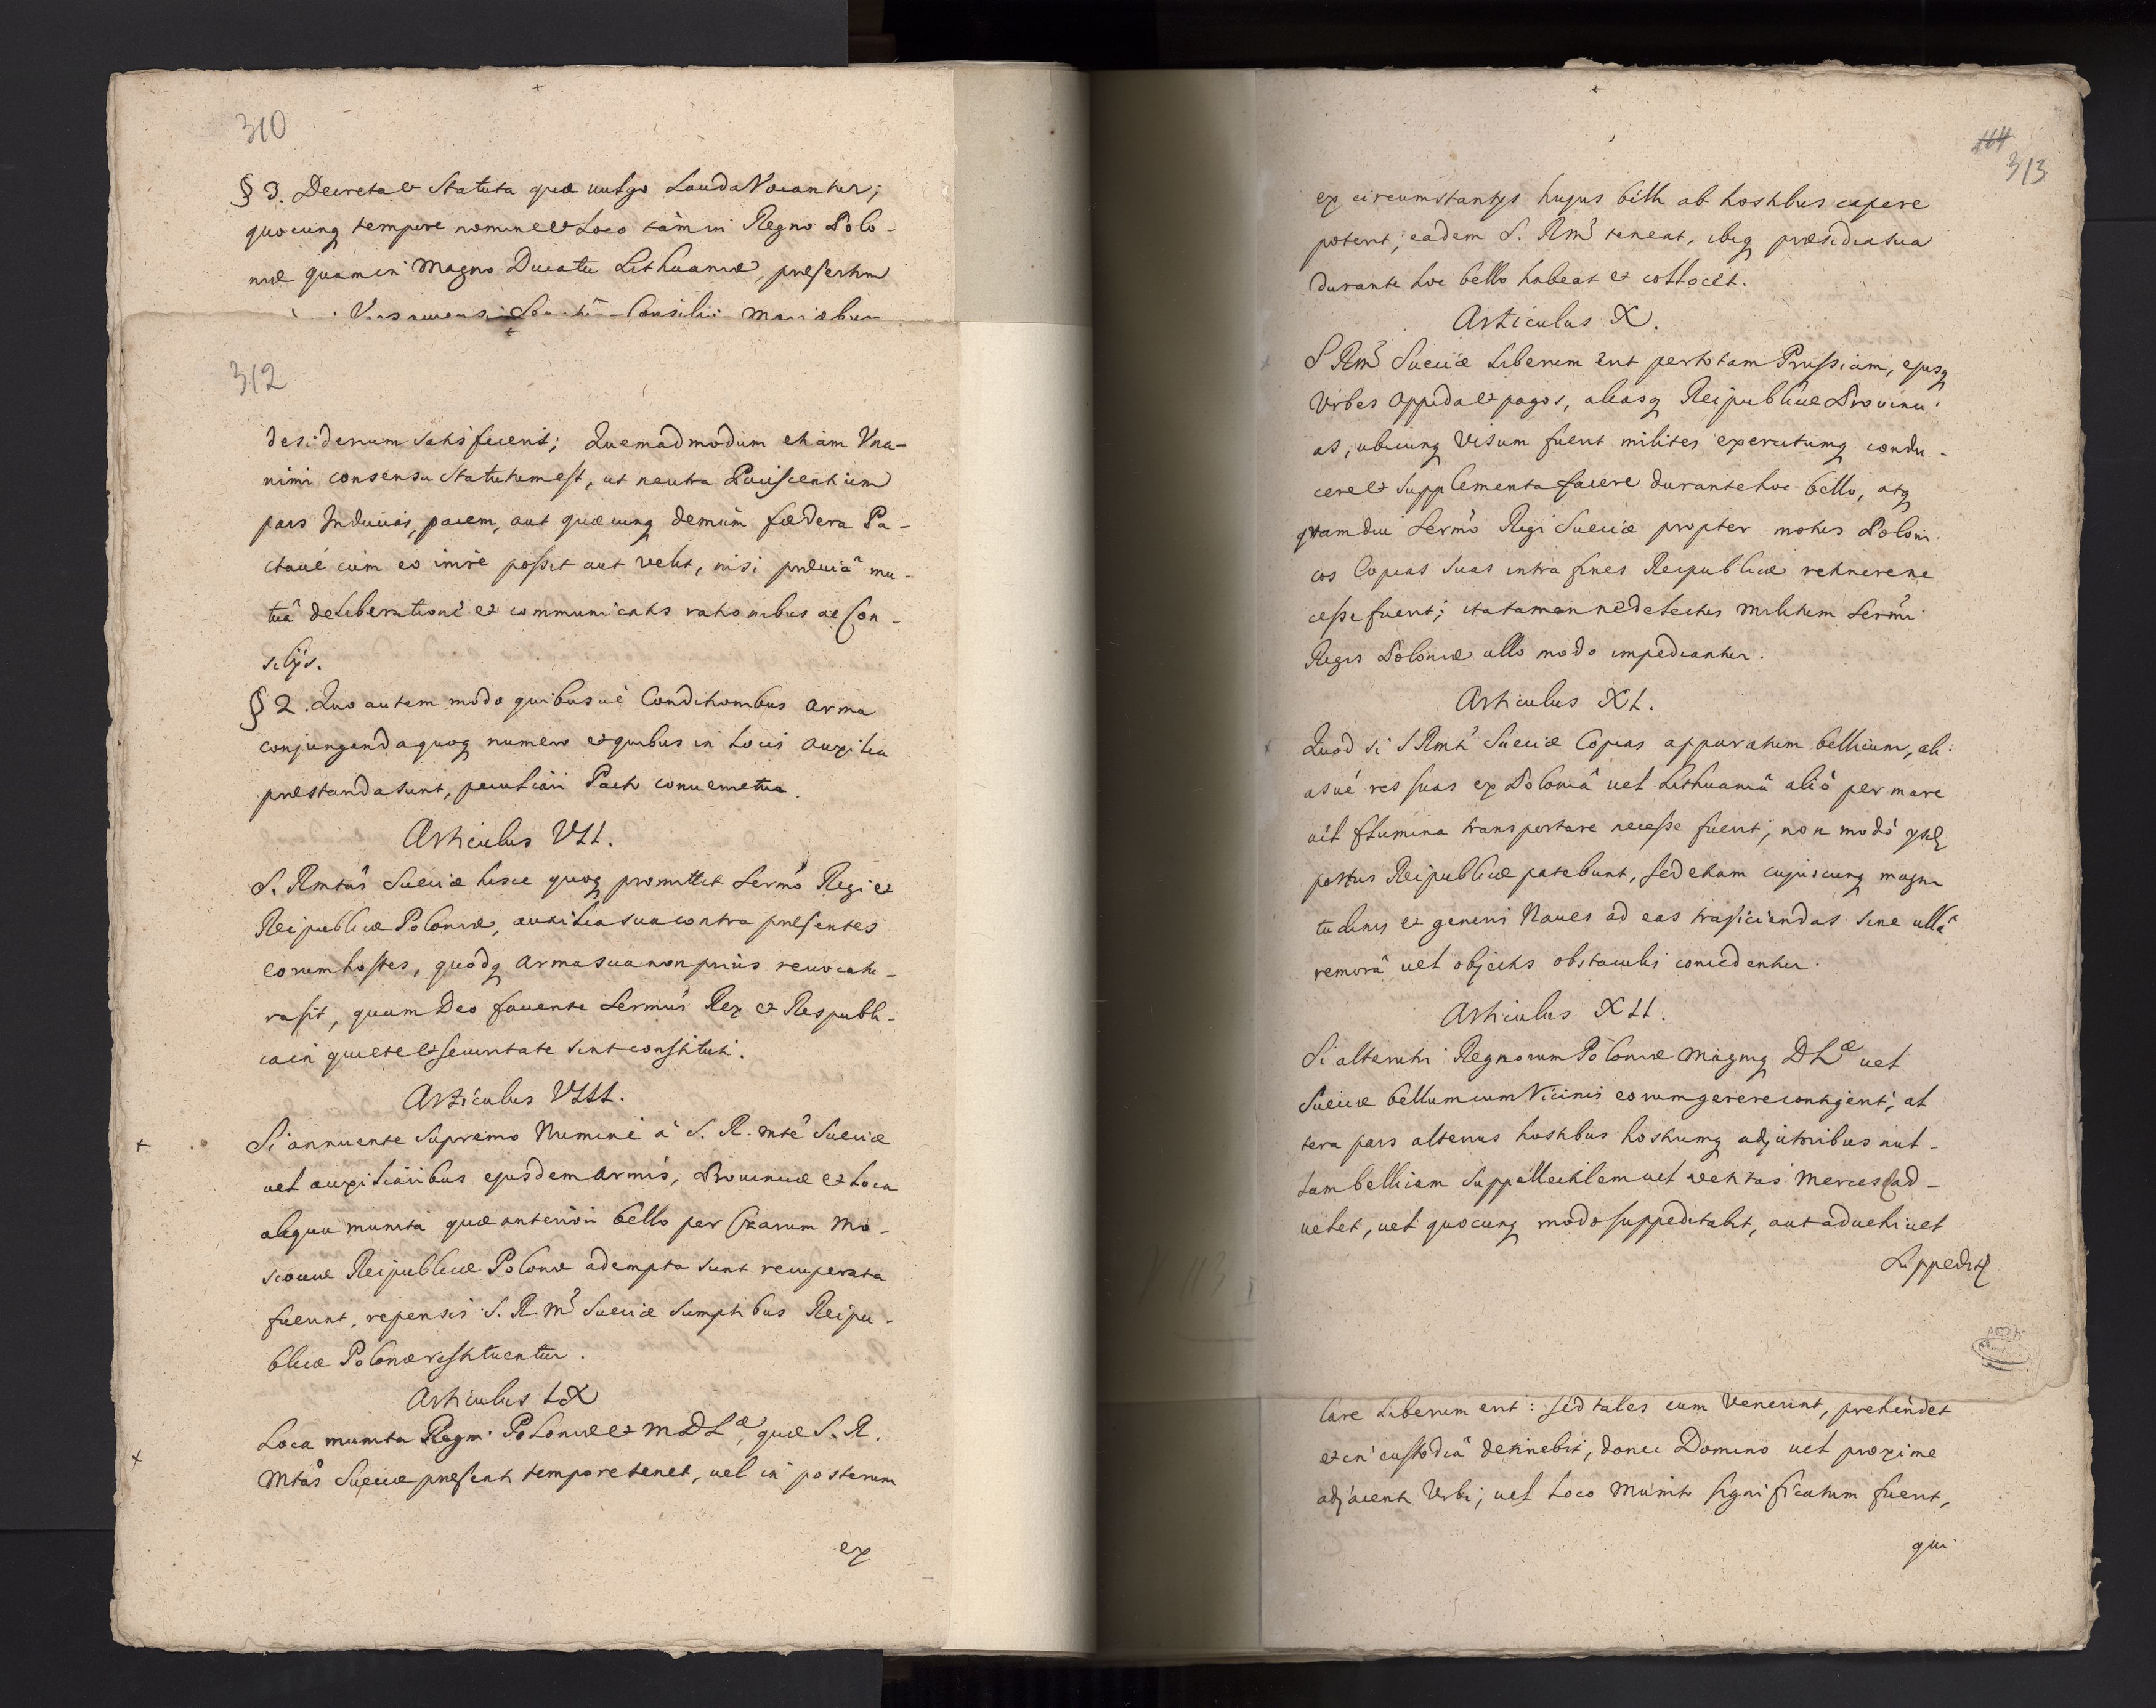 310
§ 3. Decreta et Statuta quæ vulgo Lauda Vocantur;
quocunq tempore nomine et Loco tàm in Regno Polo-
niæ quam in Magno Ducatu Lithuaniæ, præsertim
312
desiderium satisfecerit; Quemadmodum etiam Vna-
nimi consensu Statutum est, ut neutra Paciscentium
pars Inducias, pacem, aut quæcunq demùm fœdera Pa-
ctavé cùm eo inire possit aut velit, nisi præviâ mu-
tuâ deliberatione et communicatis rationibus ac Con-
silijs.
§ 2. Quo autem modo quibusvè Conditionibus arma
conjungenda quoq numero et quibus in Locis auxilia
præstanda sunt, peculiari Pacto convenietur.
Articulus VII.
S. Rmtas Sueciæ hisce quoq promittit Sermo Regi et
Reipublicæ Poloniæ, auxilia sua contra præsentes
eorum hostes, quodq arma sua non priùs revocatu-
ra sit, quam Deo favente Sermus Rex et Respubli-
ca in quiete et securitate sint constituti.
Articulus VIII.
Si annuente Supremo Numine à S. R. mte Sueciæ
vel auxiliaribus ejusdem armis, Provinciæ et Loca
aliqua munita quæ anteriori bello per Czarum Mo-
scoviæ Reipublicæ Polonæ adempta sunt recuperata
fuerint, repensis S. R. Ms Sueciæ Sumptibus Reipu-
blicæ Polonæ restituentur.
Articulus IX
Loca munita Regni Poloniæ et MDLæ, quæ S. R.
Mtas Sueciæ præsenti tempore tenet, vel in posterum
ex
464
313
ex circumstantijs hujus belli ab hostibus capere
poterit, eadem S. Rms teneat, ibiq præsidia sua
durante hoc bello habeat et collocet.
Articulus X.
S Rms Sueciæ Liberum erit per totam Prussiam, ejusq
Vrbes Oppida et pagos, aliasq Reipublicæ Provinci-
as, ubicunq visum fuerit milites exercitumq condu-
cere et Supplementa facere durante hoc bello, atq
quamdiu Sermo Regi Sueciæ propter motus Poloni-
cos Copias suas intra fines Reipublicæ retinere ne
cesse fuerit; ita tamen ne delectus militum Sermi
Regis Poloniæ ullo modo impediantur.
Articulus XI.
Quod si S Rmti Sueciæ Copias apparatum bellicum, ali-
asvé res suas ex Poloniâ vel Lithuaniâ aliò per mare
vel flumina transportare necesse fuerit, non modò
portus Reipublicæ patebunt, sed etiam cujuscunq magni
tudinis et generis Naves ad eas trajiciendas sine ullâ
remorâ vel objectis obstaculis concedentur.
Articulus XII.
Si alterutri Regnorum Poloniæ magniq DLæ vel
Sueciæ bellum cum Vicinis eorum gerere contigerit, al
tera pars alterius hostibus hostiumq adjutoribus nul-
lam bellicam Suppellectilem vel vetitas Merces ad-
vehet, vel quocunq modo suppeditabit, aut advehi vel
Suppedit
tare Liberum erit: sed tales cum Venerint, prehendet
et in custodiâ detinebit, donec Domino vel proxime
adjacenti Vrbi, vel Loco Munito significatum fuerit,
qui